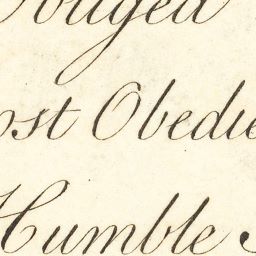 bliged
ost Obedie
Humble